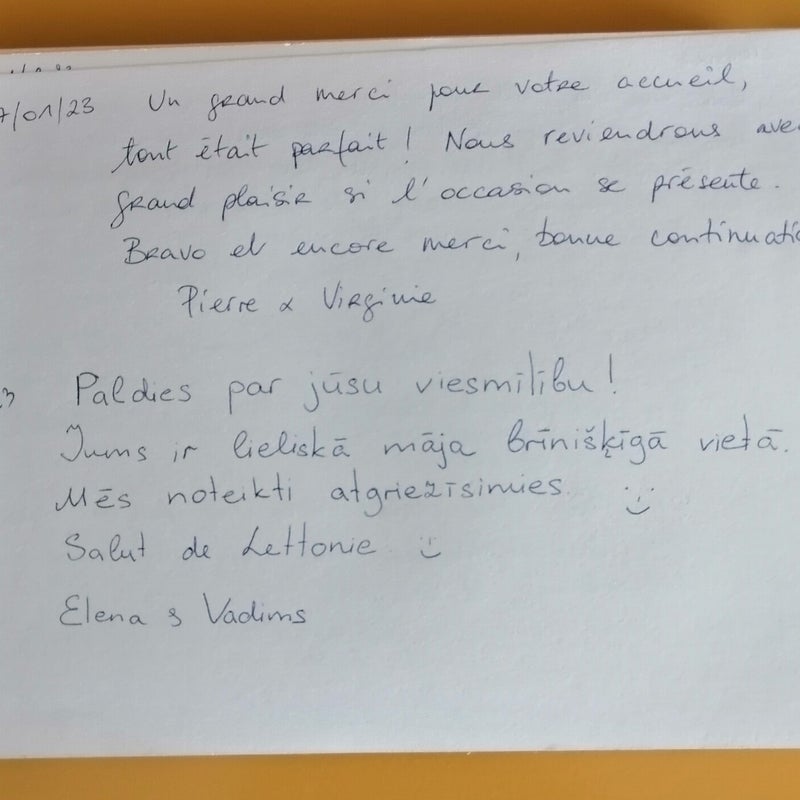 7/01/23 Un grand merci pour votre accueil,
tout était parfait ! Nous reviendrons avec
grand plaisir si l'occasion se présente.
Bravo et encore merci, bonne continuatio
Pierre & Virginie
Paldies par jūsu viesmīlību!
Jums ir lieliskā māja brīnišķīgā vietā.
Mēs noteikti atgriezīsimies. :)
Salut de Lettonie :)
Elena & Vadims